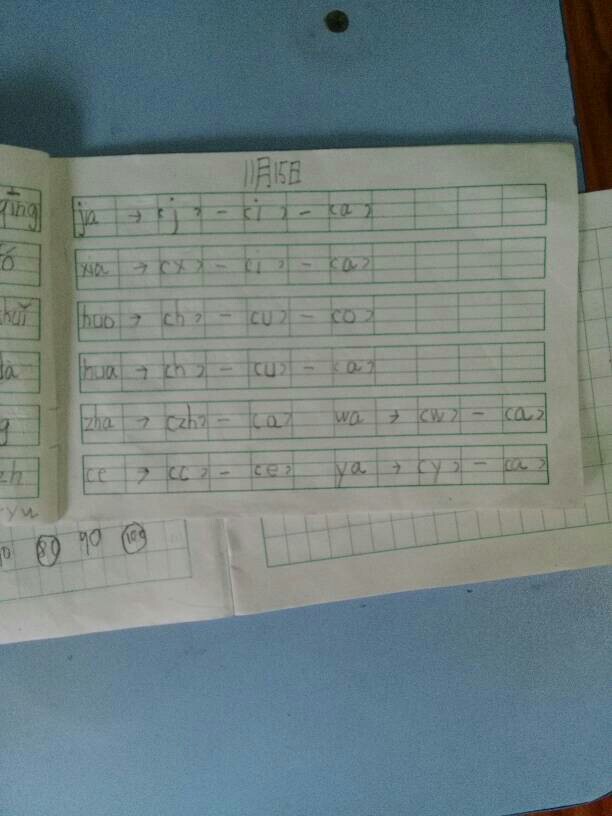 11月15日
ja → (j) - (i) - (a)
xia → (x) - (i) - (a)
huo → (h) - (u) - (o)
hua → (h) - (u) - (a)
zha → (zh) - (a) wa → (w) - (a)
ce → (c) - (e) ya → (y) - (a)
qīng
g
zh
80 90 100